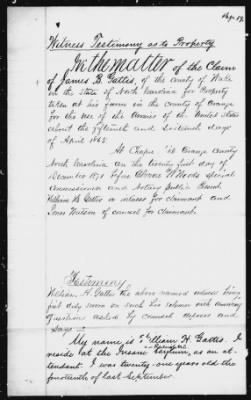 Witness Testimony as to Property
In the matter of the Claim
of James B. Gattis, of the County of Wake
in the State of North Carolina for Property
taken at his farm in the County of Orange
for the use of the Armies of the United States
about the fifteenth and sixteenth days
of April 1865.
At Chapel Hill Orange County
North Carolina on the twenty first day of
December 1871 before special
Commissioner and Notary Public
William H. Gattis a witness for claimant and
Wilson of counsel for Claimant.
Testimony
William H. Gattis the above named witness being
first duly sworn on such his solemn oath answering
questions asked by counsel deposes and
says
My name is William H. Gattis. I
reside at the Insane Asylum, as an at-
tendant. I was twenty-one years old the
fourteenth of last September